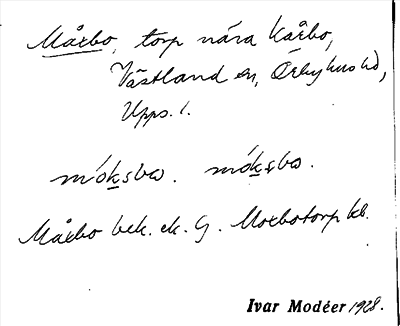 Måxbo, torp nära Kårbo,
Västland sn, Örbyhus hd,
Upps. l.
móksbω. móksbω.
Måxbo bek. ek. G. Moxbotorp kb.
Ivar Modéer 1928.